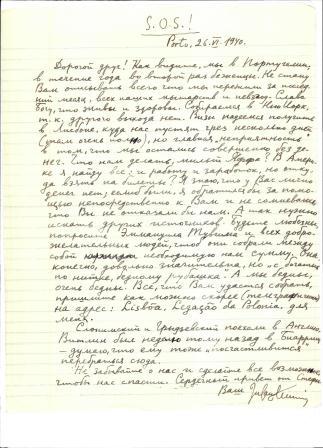 S.O.S.!
Porto, 26.VI.1940.
Дорогой друг! Как видите, мы в Португалии,
в течение года во второй раз беженцы. Не стану
Вам описывать всего что мы пережили за послед-
ний месяц, всех наших мытарств и невзгод. Слава
Богу, что живы и здоровы. Собираемся в Нью Йорк,
т.к. другого выхода нет. Визы надеемся получить
в Лисбоне, куда нас пустят через несколько дней
(там очень полно), но главная неприятность
в том, что мы остались совершенно без де-
нег. Что нам делать, милый Яффа? В Амери-
ке я найду все: и работу и заработок, но отку-
да взять на билеты? Я знаю, что у Вас лично
денег нет; если были, я обратился бы за помо-
щью непосредственно к Вам и не сомневаюсь
что Вы не отказали бы нам. А так нужно
искать других источников. Будьте любезны,
попросите Эммануила Тувима и всех добро-
желательных людей, чтоб они собрали между
собой необходимую нам сумму. Она,
конечно, довольно значительна, но "с богатых
по нитке, бедному рубашка". А мы бедны,
очень бедны. Всё, что Вам удастся собрать,
пришлите как можно скорее (телеграфически)
на адрес: Lisbôa, Legação da Polonia, для
меня.
Слонимский и Грыдзевский поехали в Англию.
Виттлин был неделю тому назад в Биаррице
— думаю, что ему тоже посчастливится
перебраться сюда.
Не забывайте о нас и сделайте все возможное,
чтобы нас спасти. Сердечный привет от Стефы
Ваш